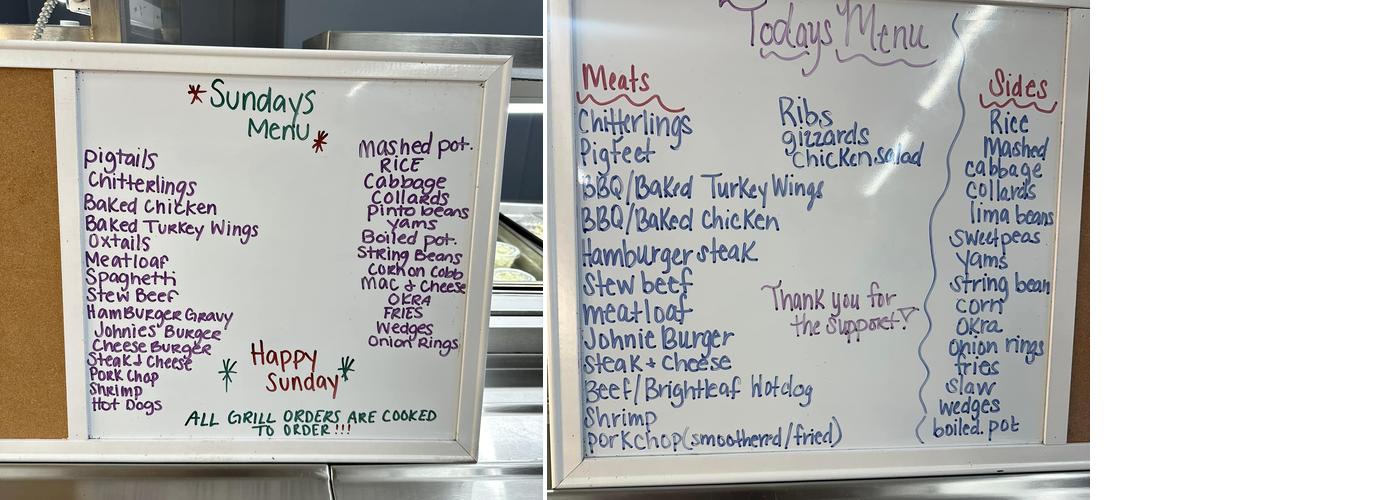 *Sundays
Menu*
pigtails
Chitterlings
Baked Chicken
Baked Turkey Wings
Oxtails
Meatloaf
Spaghetti
Stew Beef
HamBurger Gravy
Johnies Burger
Cheese Burger
Steak & Cheese
Pork Chop
Shrimp
Hot Dogs
Mashed pot.
RICE
Cabbage
Collards
pinto beans
yams
Boiled pot.
String Beans
Corn on Cobb
Mac & Cheese
OKRA
FRIES
Wedges
Onion Rings
Happy
Sunday
ALL GRILL ORDERS ARE COOKED
TO ORDER!!!
Todays Menu
Meats
Chitterlings
Pigfeet
BBQ/Baked Turkey Wings
BBQ/Baked Chicken
Hamburger steak
Stew beef
meatloaf
Johnie Burger
Steak + Cheese
Beef/Brightleaf Hotdog
Shrimp
porkchop(smoothered/fried)
Ribs
gizzards
chicken salad
Thank you for
the support!
Sides
Rice
Mashed
cabbage
collards
lima beans
sweetpeas
yams
string bean
corn
okra
onion rings
fries
slaw
wedges
boiled pot